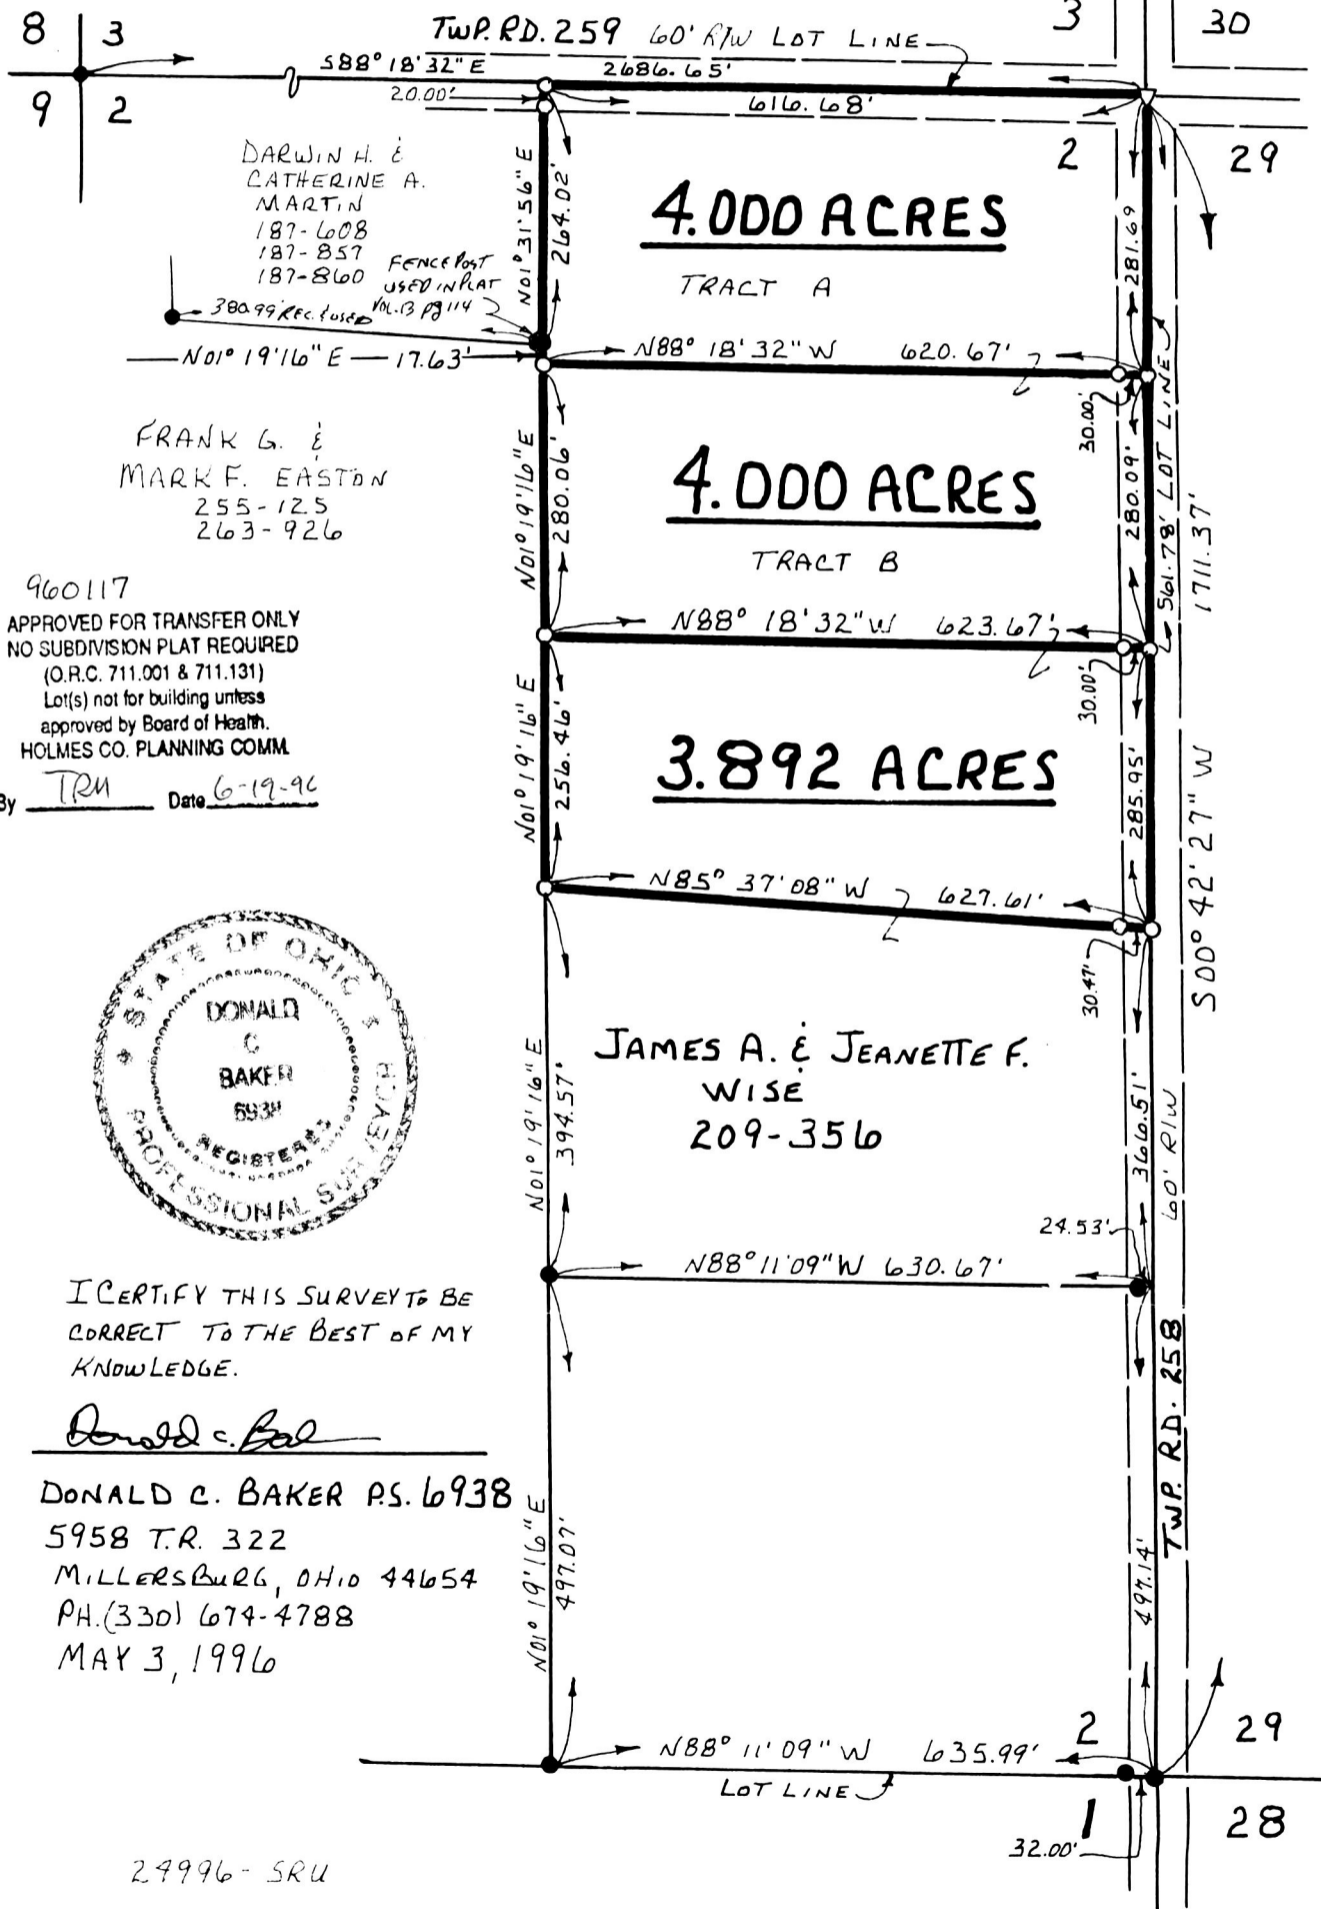 8 3
9 2
TWP. RD. 259 60' R/W LOT LINE
S88° 18' 32" E 2686.65'
20.00' 616.68'
3 30
2 29
DARWIN H. &
CATHERINE A.
MARTIN
187-608
187-857
187-860
FENCE POST
USED IN PLAT
VOL.13 pg 114
380.99' REC. & USED
N01° 19' 16" E 17.63'
N01° 31' 56" E
264.02'
4.000 ACRES
TRACT A
281.69
N88° 18' 32" W 620.67'
30.00'
FRANK G. &
MARK F. EASTON
255-125
263-926
N01° 19' 16" E
280.06'
4.000 ACRES
TRACT B
280.09'
561.78' LOT LINE
1711.37'
N88° 18' 32" W 623.67'
30.00'
960117
APPROVED FOR TRANSFER ONLY
NO SUBDIVISION PLAT REQUIRED
(O.R.C. 711.001 & 711.131)
Lot(s) not for building unless
approved by Board of Health.
HOLMES CO. PLANNING COMM.
By TRM Date 6-19-96
N01° 19' 16" E
256.46'
3.892 ACRES
285.95'
S00° 42' 27" W
N85° 37' 08" W 627.61'
30.47'
STATE OF OHIO
DONALD
C
BAKER
6938
REGISTERED
PROFESSIONAL SURVEYOR
JAMES A. & JEANETTE F.
WISE
209-356
N01° 19' 16" E
394.57'
366.51'
60' R/W
24.53'
N88° 11' 09" W 630.67'
I CERTIFY THIS SURVEY TO BE
CORRECT TO THE BEST OF MY
KNOWLEDGE.
Donald C. Bak
DONALD C. BAKER P.S. 6938
5958 T.R. 322
MILLERSBURG, OHIO 44654
PH. (330) 674-4788
MAY 3, 1996
N01° 19' 16" E
497.07'
497.14'
TWP. RD. 258
N88° 11' 09" W 635.99'
LOT LINE
2 29
1 28
32.00'
29996-SRU